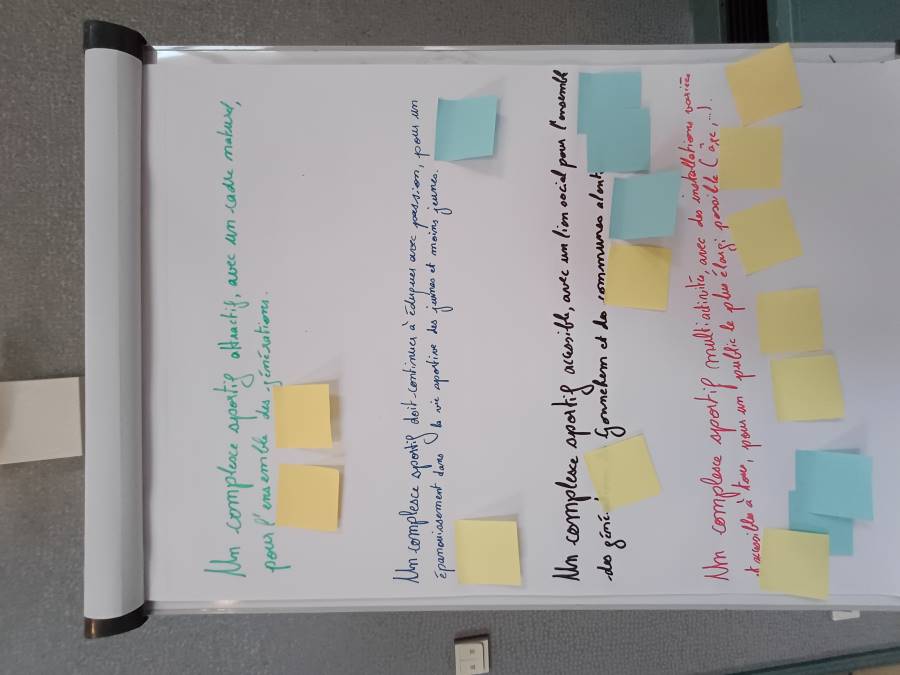 Un complexe sportif attractif, avec un cadre naturel,
pour l'ensemble des générations.
Un complexe sportif doit continuer à éduquer avec passion, pour un
épanouissement dans la vie sportive des jeunes et moins jeunes.
Un complexe sportif accessible, avec un lien social pour l'ensemble
des géné Gonnehem et des communes
Un complexe sportif multiactivité, avec des installations variées
et accessibles à tous, pour un public le plus élargi possible (âge, ...).